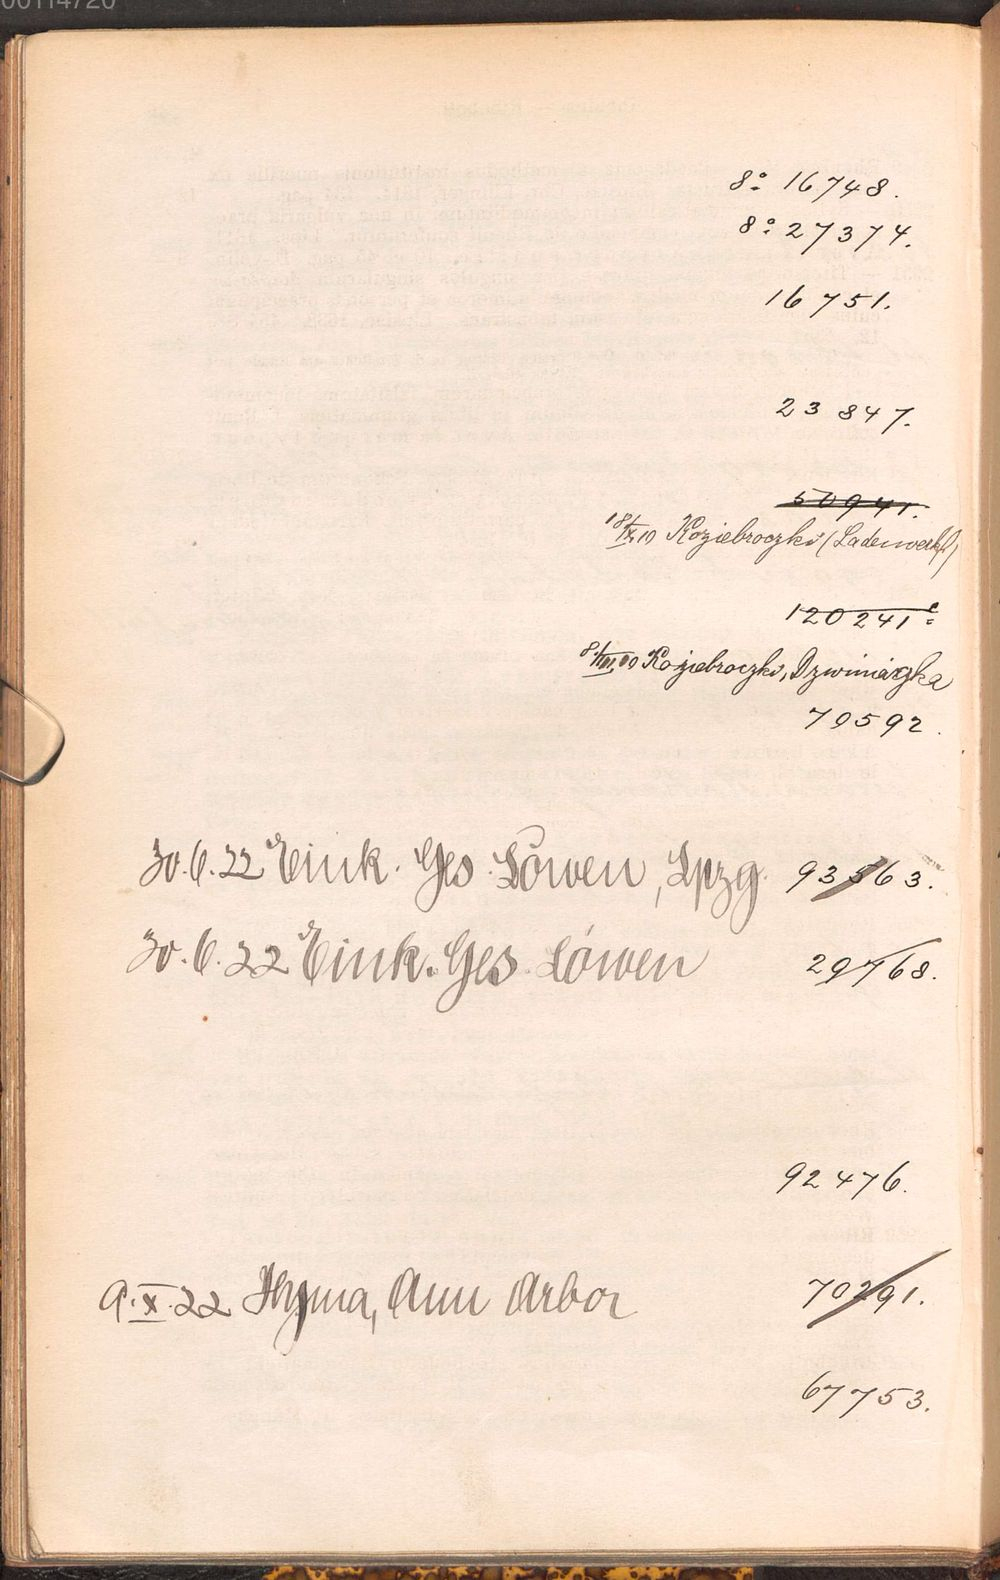 00114720
8° 16748.
8° 27374.
16751.
23847.
50941.
18/IX 10 Koziebroczki (Ladenverk.)
120241
8/III,00 Koziebroczki, Dzwiniaczka
70592.
30.6.22 Eink. Ges. Löwen, Lpzg. 93563.
30.6.22 Eink. Ges. Löwen 29768.
92476.
9.X.22 Hyma, Ann Arbor 70291.
67753.